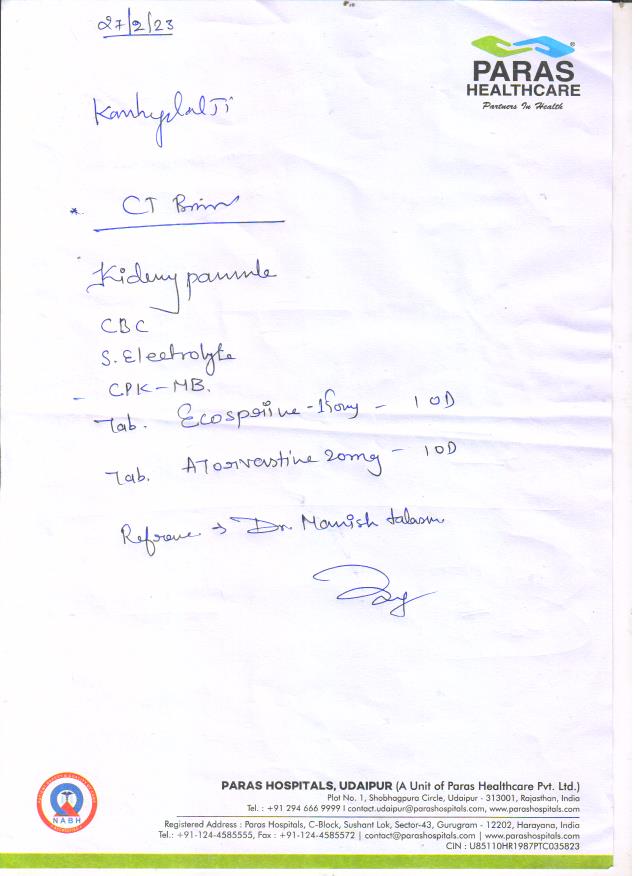 27/2/23
PARAS
HEALTHCARE
Partners In Health
KanhyalalJi
* CT Brain
Kideny pannle
CBC
S. Electrolyte
CPK-MB.
Tab. Ecospriine - 150mg - 1 OD
Tab. ATorvastine 20mg - 1 OD
Refrence → Dr. Manish
NABH
PARAS HOSPITALS, UDAIPUR (A Unit of Paras Healthcare Pvt. Ltd.)
Plot No. 1, Shobhagpura Circle, Udaipur - 313001, Rajasthan, India
Tel. : +91 294 666 9999 I contact.udaipur@parashospitals.com, www.parashospitals.com
Registered Address : Paras Hospitals, C-Block, Sushant Lok, Sector-43, Gurugram - 12202, Harayana, India
Tel.: +91-124-4585555, Fax : +91-124-4585572 | contact@parashospitals.com | www.parashospitals.com
CIN : U85110HR1987PTC035823